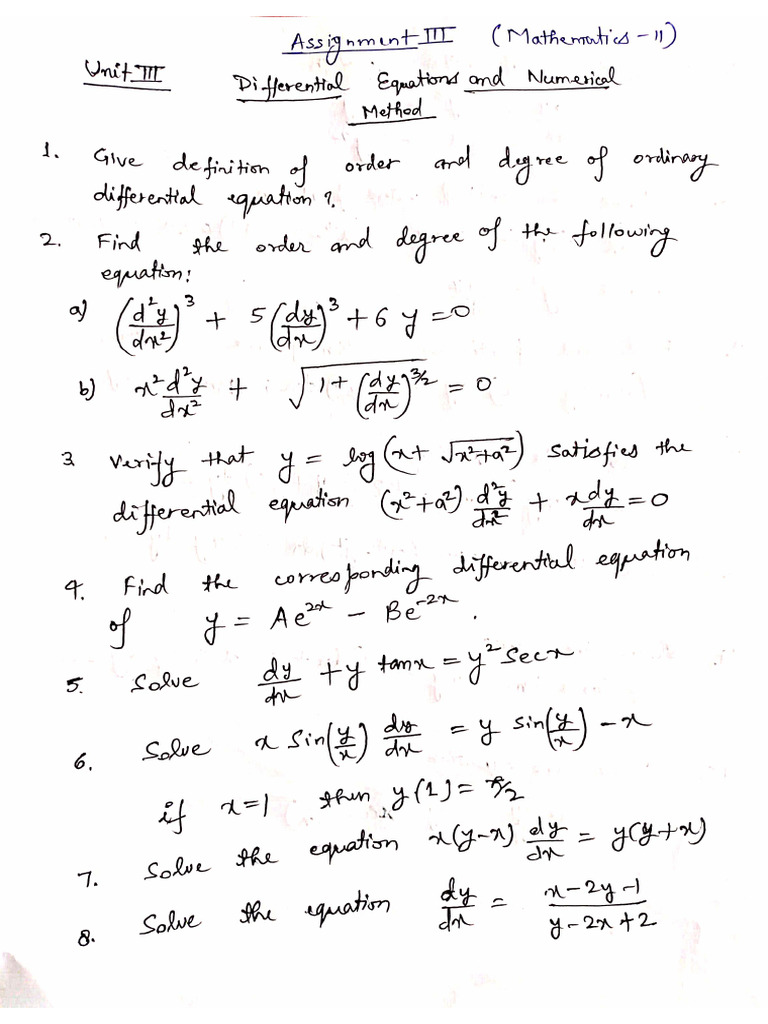 Assignment III (Mathematics-II)
Unit III Differential Equations and Numerical
Method
1. Give definition of order and degree of ordinary
differential equation?
2. Find the order and degree of the following
equation:
a) (d²y/dx²)³ + 5(dy/dx)³ + 6y = 0
b) x² d²y/dx² + √(1+(dy/dx)^(3/2)) = 0
3 Verify that y = log(x+√(x²+a²)) satisfies the
differential equation (x²+a²) d²y/dx² + x dy/dx = 0
4. Find the corresponding differential equation
of y = Ae^(2x) - Be^(-2x).
5. Solve dy/dx + y tanx = y² secx
6. Solve x Sin(y/x) dy/dx = y sin(y/x) - x
if x=1 then y(1) = π/2
7. Solve the equation x(y-x) dy/dx = y(y+x)
8. Solve the equation dy/dx = (x-2y-1)/(y-2x+2)